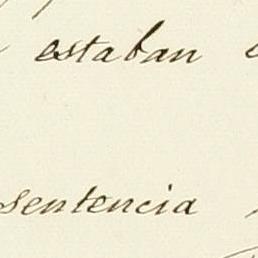 estaban
sentencia